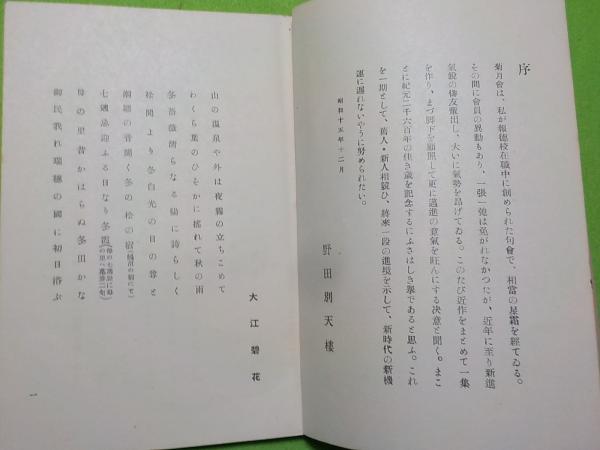 序
菊月會は、私が報德校在職中に創められた句會で、相當の星霜を經てゐる。
その間に會員の異動もあり、一張一弛は免がれなかつたが、近年に至り新進
氣銳の俳友輩出し、大いに氣勢を昂げてゐる。このたび近作をまとめて一集
を作り、まづ脚下を顧照して更に邁進の意氣を旺んにする決意と聞く。まこ
とに紀元二千六百年の佳き歲を記念するにふさはしき擧であると思ふ。これ
を一期として、舊人・新人相競ひ、將來一段の進境を示して、新時代の新機
運に遲れないやうに努められたい。
昭和十五年十二月
野田別天樓
大江碧花
山の溫泉や外は夜霧の立ちこめて
わくら葉のひそかに搖れて秋の雨
冬薔薇清らなる陽に誇らしく
松間より冬白光の日の尊と
潮騷の音聞く冬の松の宿
七週忌迎ふる日なり冬霞
母の里昔かはらぬ冬田かな
御民我れ瑞穗の國に初日浴ぶ
一